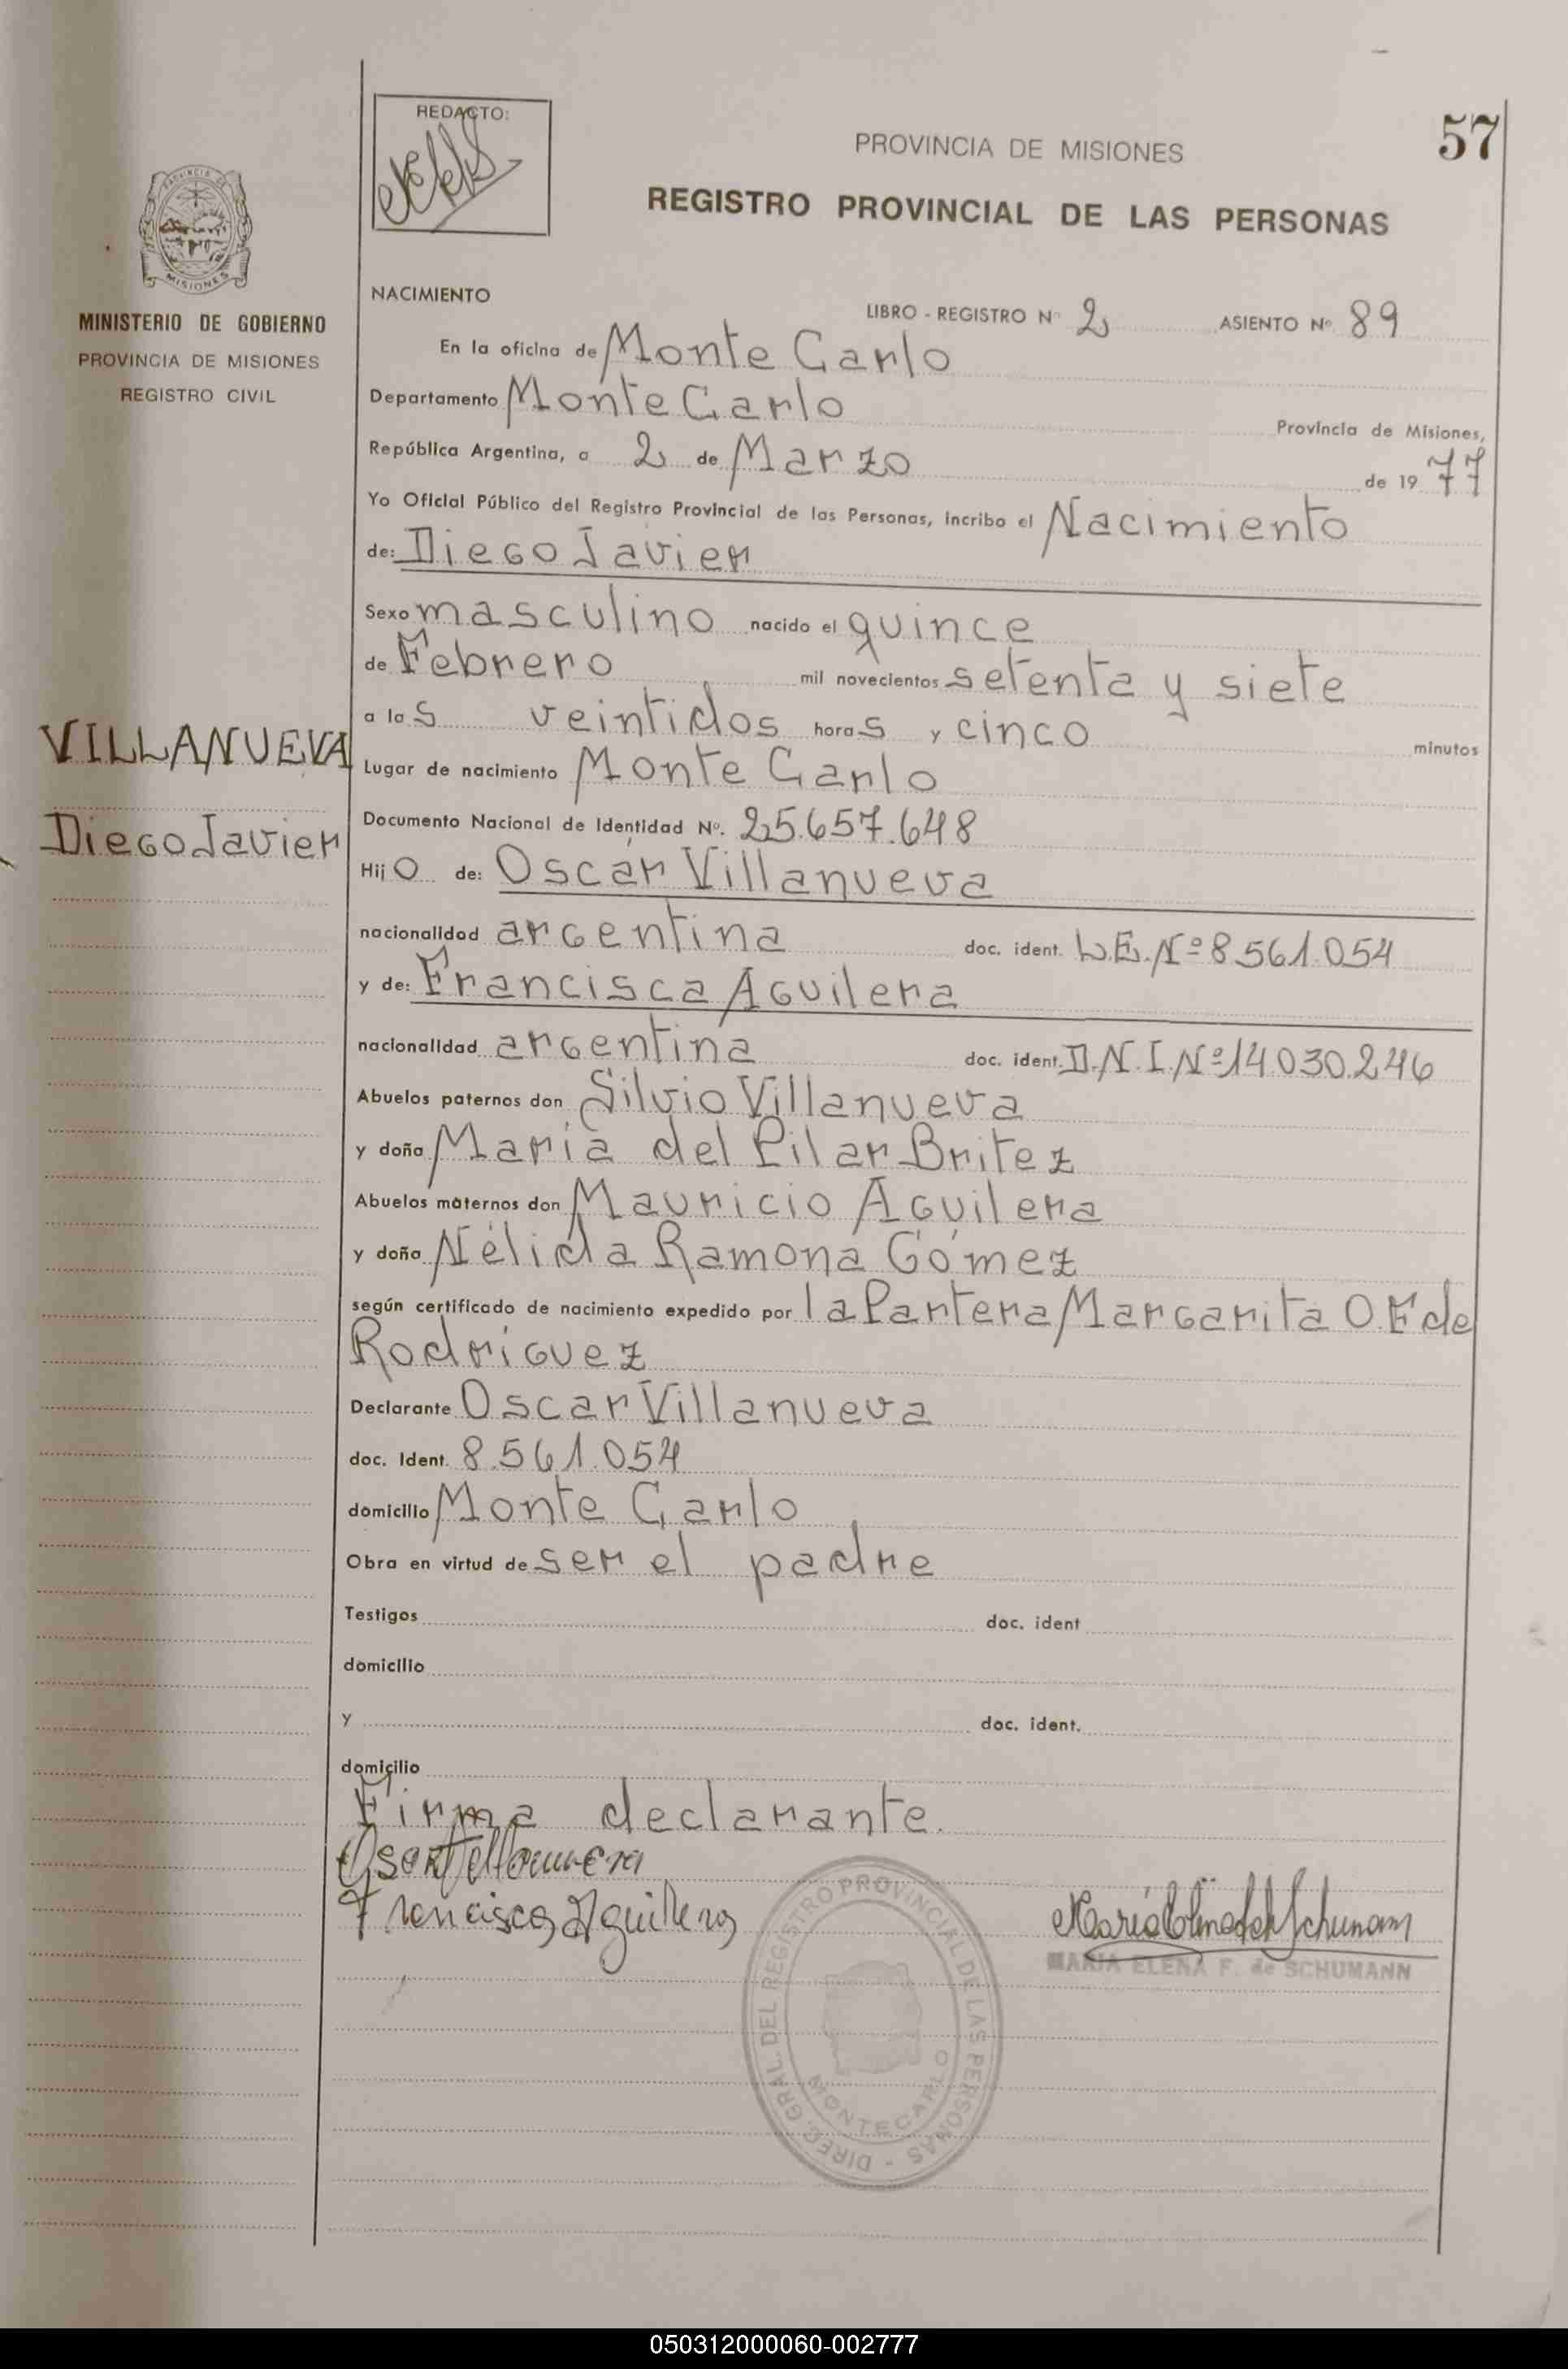 REDACTO:
57
PROVINCIA DE MISIONES
REGISTRO PROVINCIAL DE LAS PERSONAS
PROVINCIA DE
MISIONES
MINISTERIO DE GOBIERNO
PROVINCIA DE MISIONES
REGISTRO CIVIL
VILLANUEVA
Diego Javier
NACIMIENTO
LIBRO - REGISTRO Nº 2 ASIENTO Nº 89
En la oficina de Monte Carlo
Departamento Monte Carlo Provincia de Misiones,
República Argentina, a 2 de Marzo de 1977
Yo Oficial Público del Registro Provincial de las Personas, incribo el Nacimiento
de: Diego Javier
Sexo masculino nacido el quince
de Febrero mil novecientos setenta y siete
a las veintidos horas y cinco minutos
Lugar de nacimiento Monte Carlo
Documento Nacional de Identidad Nº. 25.657.648
Hijo de: Oscar Villanueva
nacionalidad argentina doc. ident. L.E. Nº 8.561.054
y de: Francisca Aguilera
nacionalidad argentina doc. ident. D.N.I. Nº 14.030.246
Abuelos paternos don Silvio Villanueva
y doña María del Pilar Britez
Abuelos maternos don Mauricio Aguilera
y doña Nélida Ramona Gómez
según certificado de nacimiento expedido por la Partera Margarita O. F de
Rodríguez
Declarante Oscar Villanueva
doc. Ident. 8.561.054
domicilio Monte Carlo
Obra en virtud de ser el padre
Testigos doc. ident
domicilio
y doc. ident.
domicilio
Firma declarante.
Oscar Villanueva
Francisca Aguilera
MARIA ELENA F. de SCHUMANN
DIREC. GRAL. DEL REGISTRO PROVINCIAL DE LAS PERSONAS -
MONTECARLO
050312000060-002777